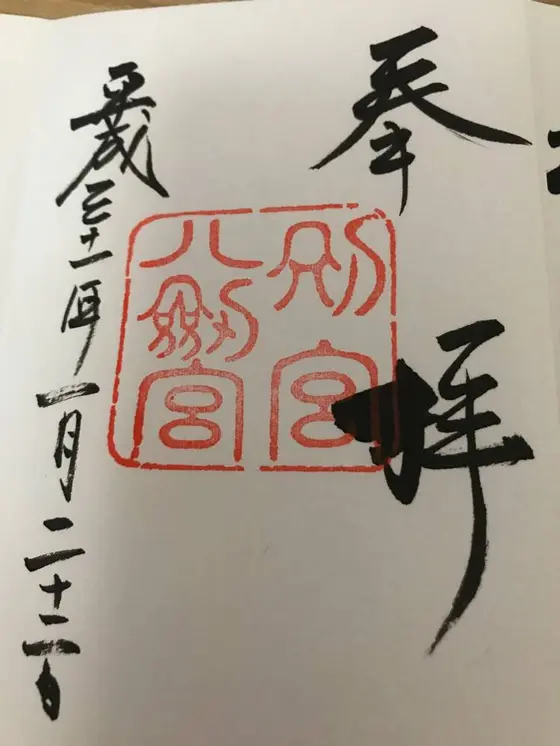 奉拝
別宮
八剱宮
平成三十一年一月二十二日